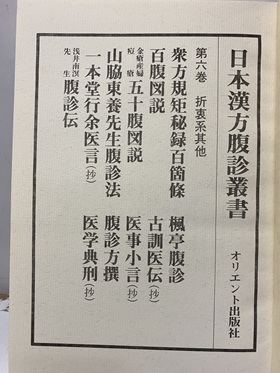 日本漢方腹診叢書 オリエント出版社
第六巻 折衷系其他
衆方規矩秘録百箇條 楓亭腹診
百腹図説 古訓医伝(抄)
金瘡産婦
痘瘡
五十腹図説 医事小言(抄)
山脇東養先生腹診法 腹診方撰
一本堂行余医言(抄) 医学典刑(抄)
浅井南溟
先生
腹診伝